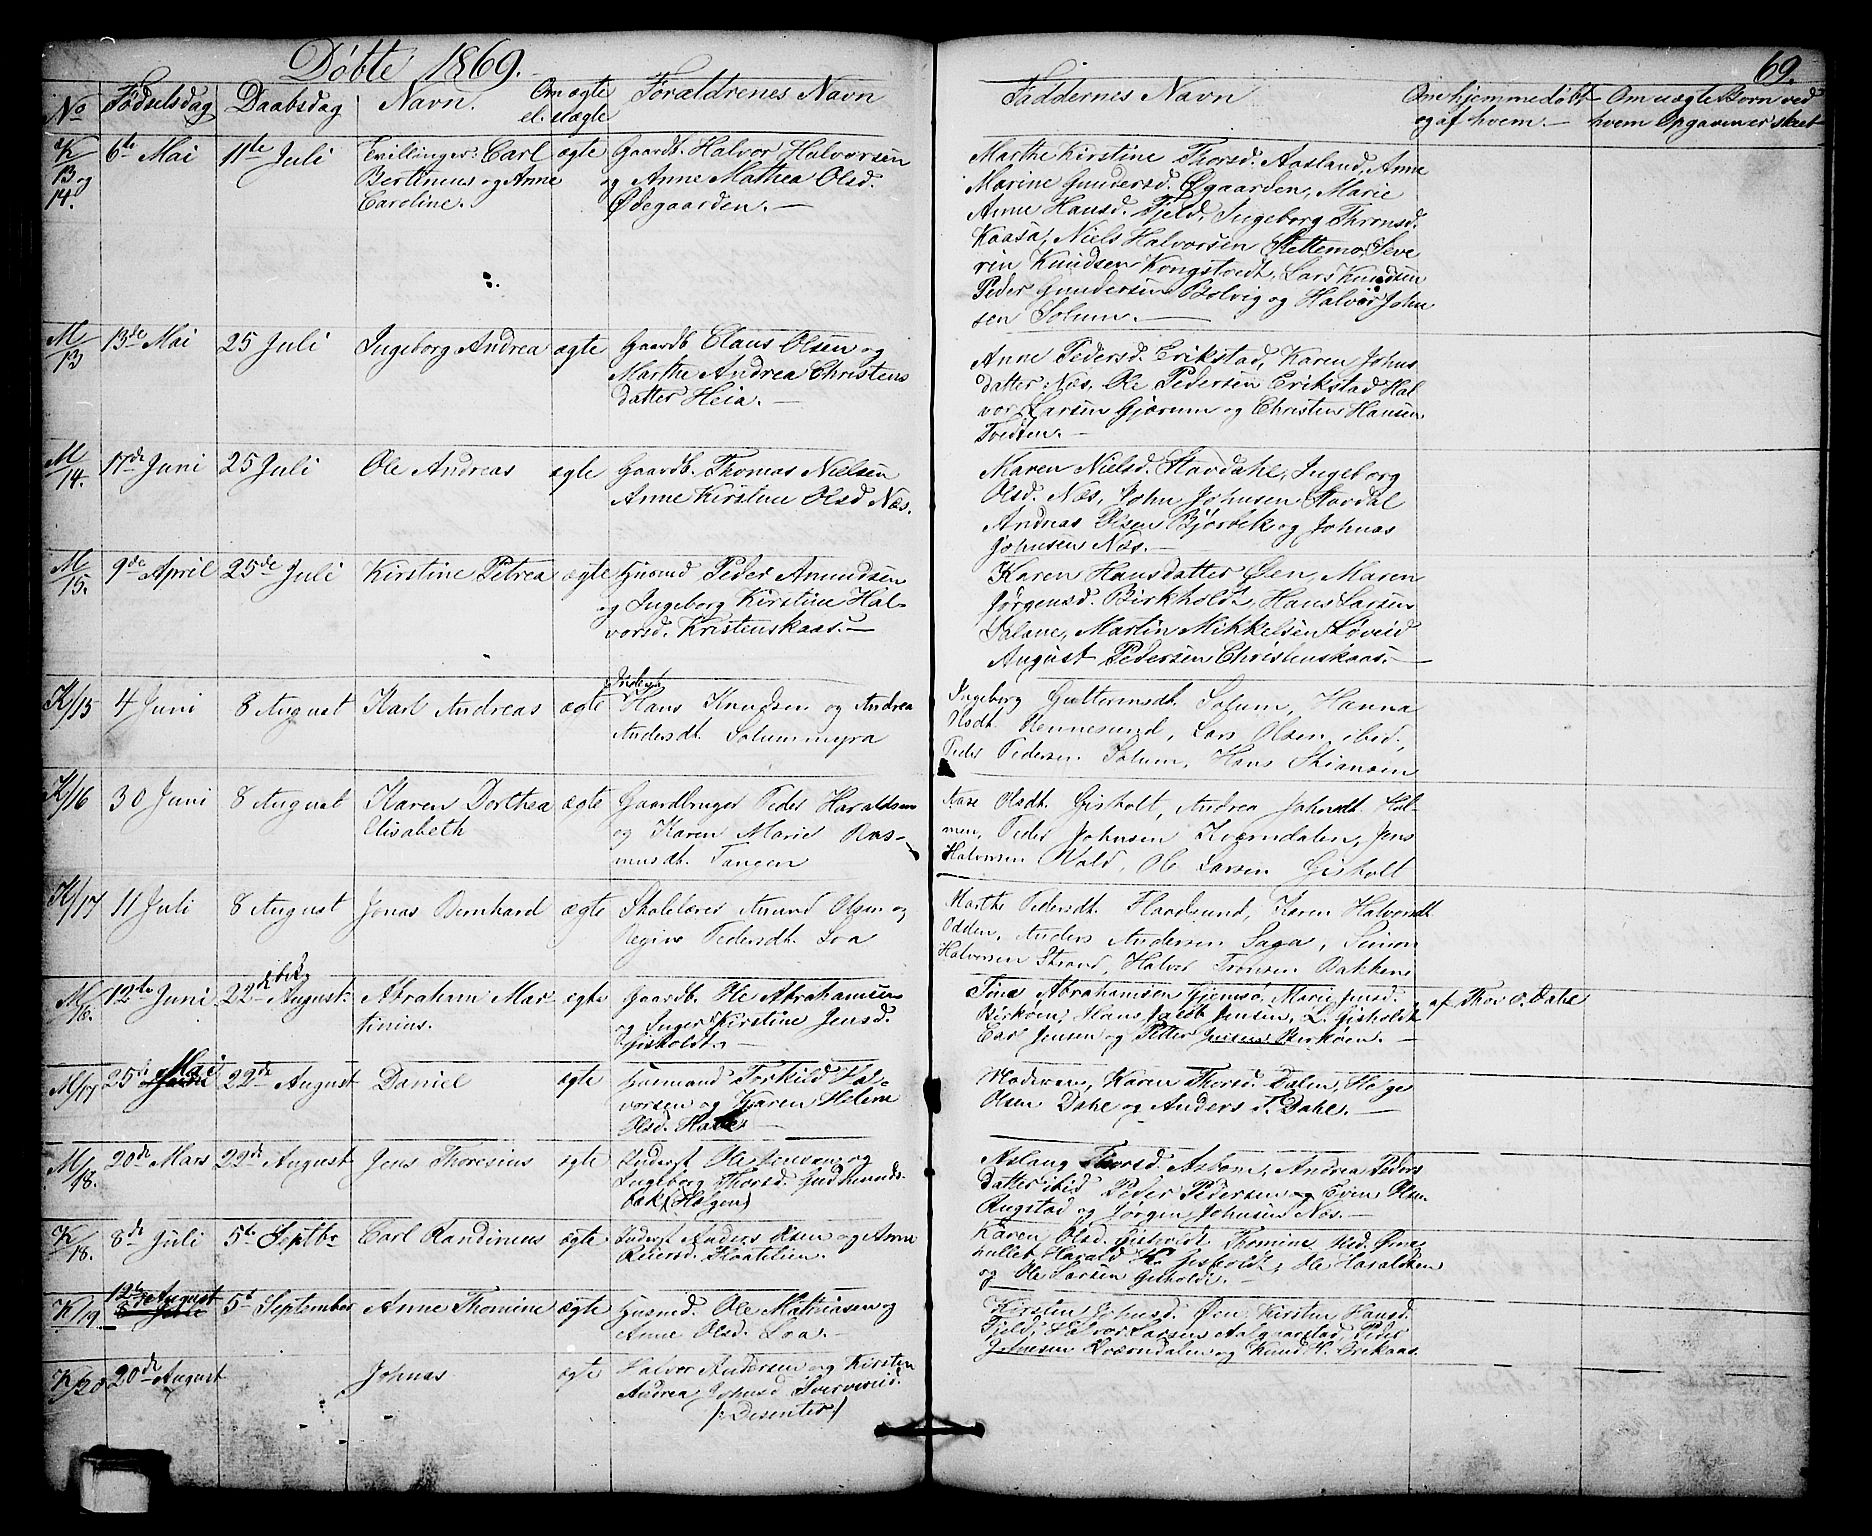 Døbte 1869.
69.
No Fødselsdag Daabsdag Navn. Om ægte el. uægte Forældrenes Navn Faddernes Navn Om hjemmedøbt og af hvem. — Om uægte Børn ved hvem Opgaven er skeet
K/13 og 14. 6te Mai 11te Juli Tvillinger: Carl ægte Gaardb. Halvor Halvorsen
Bertinius og Anne og Anne Mathea Olsd.
Caroline. Ødegaarden. —
Marthe Kirstine Thorsd. Aasland, Anne
Marine Gundersd. Øgaarden, Marie
Anne Hansd. Fjeld, Ingeborg Thronsd.
Kaasa, Niels Halvorsen Slettemo, Seve
rin Knudsen Kongstvedt, Lars Knudsen
Peder Gundersen Bolvig og Halvor John
sen Solum. —
M/13 13de Mai 25 Juli Ingeborg Andrea ægte Gaardb Claus Olsen og
Marthe Andrea Christens
datter Heia. —
Anne Pedersd. Erikstad, Karen Johns
datter Næs. Ole Pedersen Erikstad Hal
vor Larsen Gjærum og Christen Hansen
Tvedten. —
M/14. 17de Juni 25 Juli Ole Andreas ægte Gaardb. Thomas Nielsen
Anne Kirstine Olsd Næs.
Maren Nielsd. Stavdahl, Ingeborg
Olsd. Næs, John Johnsen Stavdal
Andreas Olsen Bjørbek og Johnas
Johnsen Næs. —
M/15. 9de April 25de Juli Kirstine Petrea ægte Husmd Peder Amundsen
og Ingeborg Kirstine Hal-
vorsd. Kristenskaas. —
Karen Hansdatter Øen, Maren
Jørgensd. Birkholdt, Hans Larsen
Klave, Martin Mikkelsen Løveid
August Pedersen Christenskaas. —
K/15 4 Juni 8 August Karl Andreas ægte Hans Knudsen og Andrea
Andersdt. Solummyra
Ingeborg Guttormsdt. Solum, Hanna
Olsdt. Hennesund, Lars Olsen ibid,
Peder Pedersen Solum, Hans
K/16 30 Juni 8 August Karen Dorthea ægte Gaardbruger Peder Haraldsen
Elisabeth og Karen Marie Ras-
musdt. Tangen
Aase Olsdt. Gisholt, Andrea Johnsdt. Hol-
men, Peder Johnsen Kværndalen, Jens
Halvorsen Wald, Ole Larsen Gisholt
K/17 11 Juli 8 August Jonas Bernhard ægte Skolelærer Amund Olsen og
Regine Pedersdt. Loa
Marthe Pedersdt. Flaadsund, Karen Halvorsdt.
Odden, Anders Andersen Saga, Simon
Halvorsen Strand, Halvor Tronsen Bakkene
M/16. 12te Juni 22de August Abrahm Mar ægte Gaardb. Ole Abrahamsen
tinius. og Inger Kirstine Jensd.
Gisholdt. —
Tine Abrahamsen Gjemsø, Marie Jensd.
Birkøen, Hans Jacob Jensen, L. Gisholdt
Carl Jensen og Petter Jensen Berkøen. —
af Thor O. Dahl
M/17 25de Mai 22de August Daniel ægte Husmand Torkild Hal-
vorsen og Karen Helene
Olsd.
Moderen, Karen Thorsd. Dalen, Helge
Olsen Dahl og Anders T. Dahl. —
M/18. 20de Mars 22de August Jens Thoresius ægte Inderst Ole Jensen og
Ingeborg Thorsd. Gudmunds-
bak (Helgen)
Aslaug Thorsd. Asbom, Andrea Peders
datter ibid Peder Pedersen og Even Olsen
Rugstad og Jørgen Johnsen Næs. —
K/18. 8de Juli 5te Septbr Carl Randinius ægte Inderst Anders Olsen og Anne
Reiersd.
Karen Olsd. Gisholdt. Thomine
Harald Gisholdt, Ole Haraldsen
og Ole Larsen Gisholdt. —
K/19. 12te August 5te September Anne Thomine ægte Husmd. Ole Mathiasen og
8 Anne Olsd. Loa. —
Kirsten Johnsd. Øen, Kirsten Hansd.
Fjeld, Halvor Larsen Aafgaarstad, Peder
Johnsen Kværndalen og Knud H. Grekaas
K/20 20de August Johnas ægte Halvor Andersen og Kirsten
Andrea Johnsd Sverveeid.
/: Desenter /